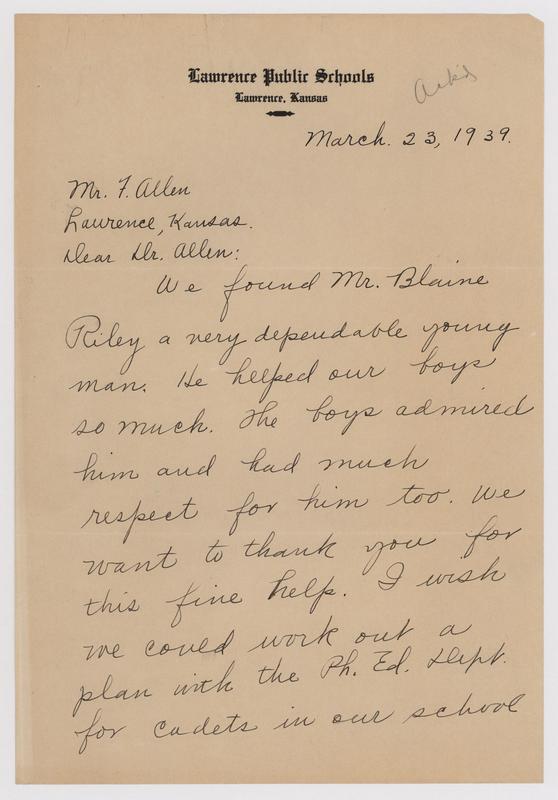 Lawrence Public Schools
Lawrence, Kansas
Ack'd
March. 23, 1939.
Mr. F. Allen
Lawrence, Kansas.
Dear Dr. Allen:
We found Mr. Blaine
Riley a very dependable young
man. He helped our boys
so much. The boys admired
him and had much
respect for him too. We
want to thank you for
this fine help. I wish
we could work out a
plan with the Ph. Ed. Dept.
for cadets in our school